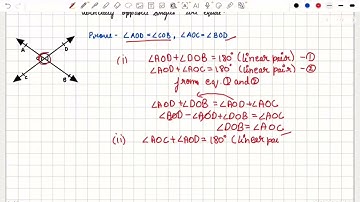 vertically opposite angles are equal.
Prove:- ∠AOD = ∠COB, ∠AOC = ∠BOD
A
D
O
C
B
(i) ∠AOD + ∠DOB = 180° (linear pair) -①
∠AOD + ∠AOC = 180° (linear pair) -②
from eq. ① and ②
∠AOD + ∠DOB = ∠AOD + ∠AOC
∠AOD - ∠AOD + ∠DOB = ∠AOC
∠DOB = ∠AOC
(ii) ∠AOC + ∠AOD = 180° (linear pai